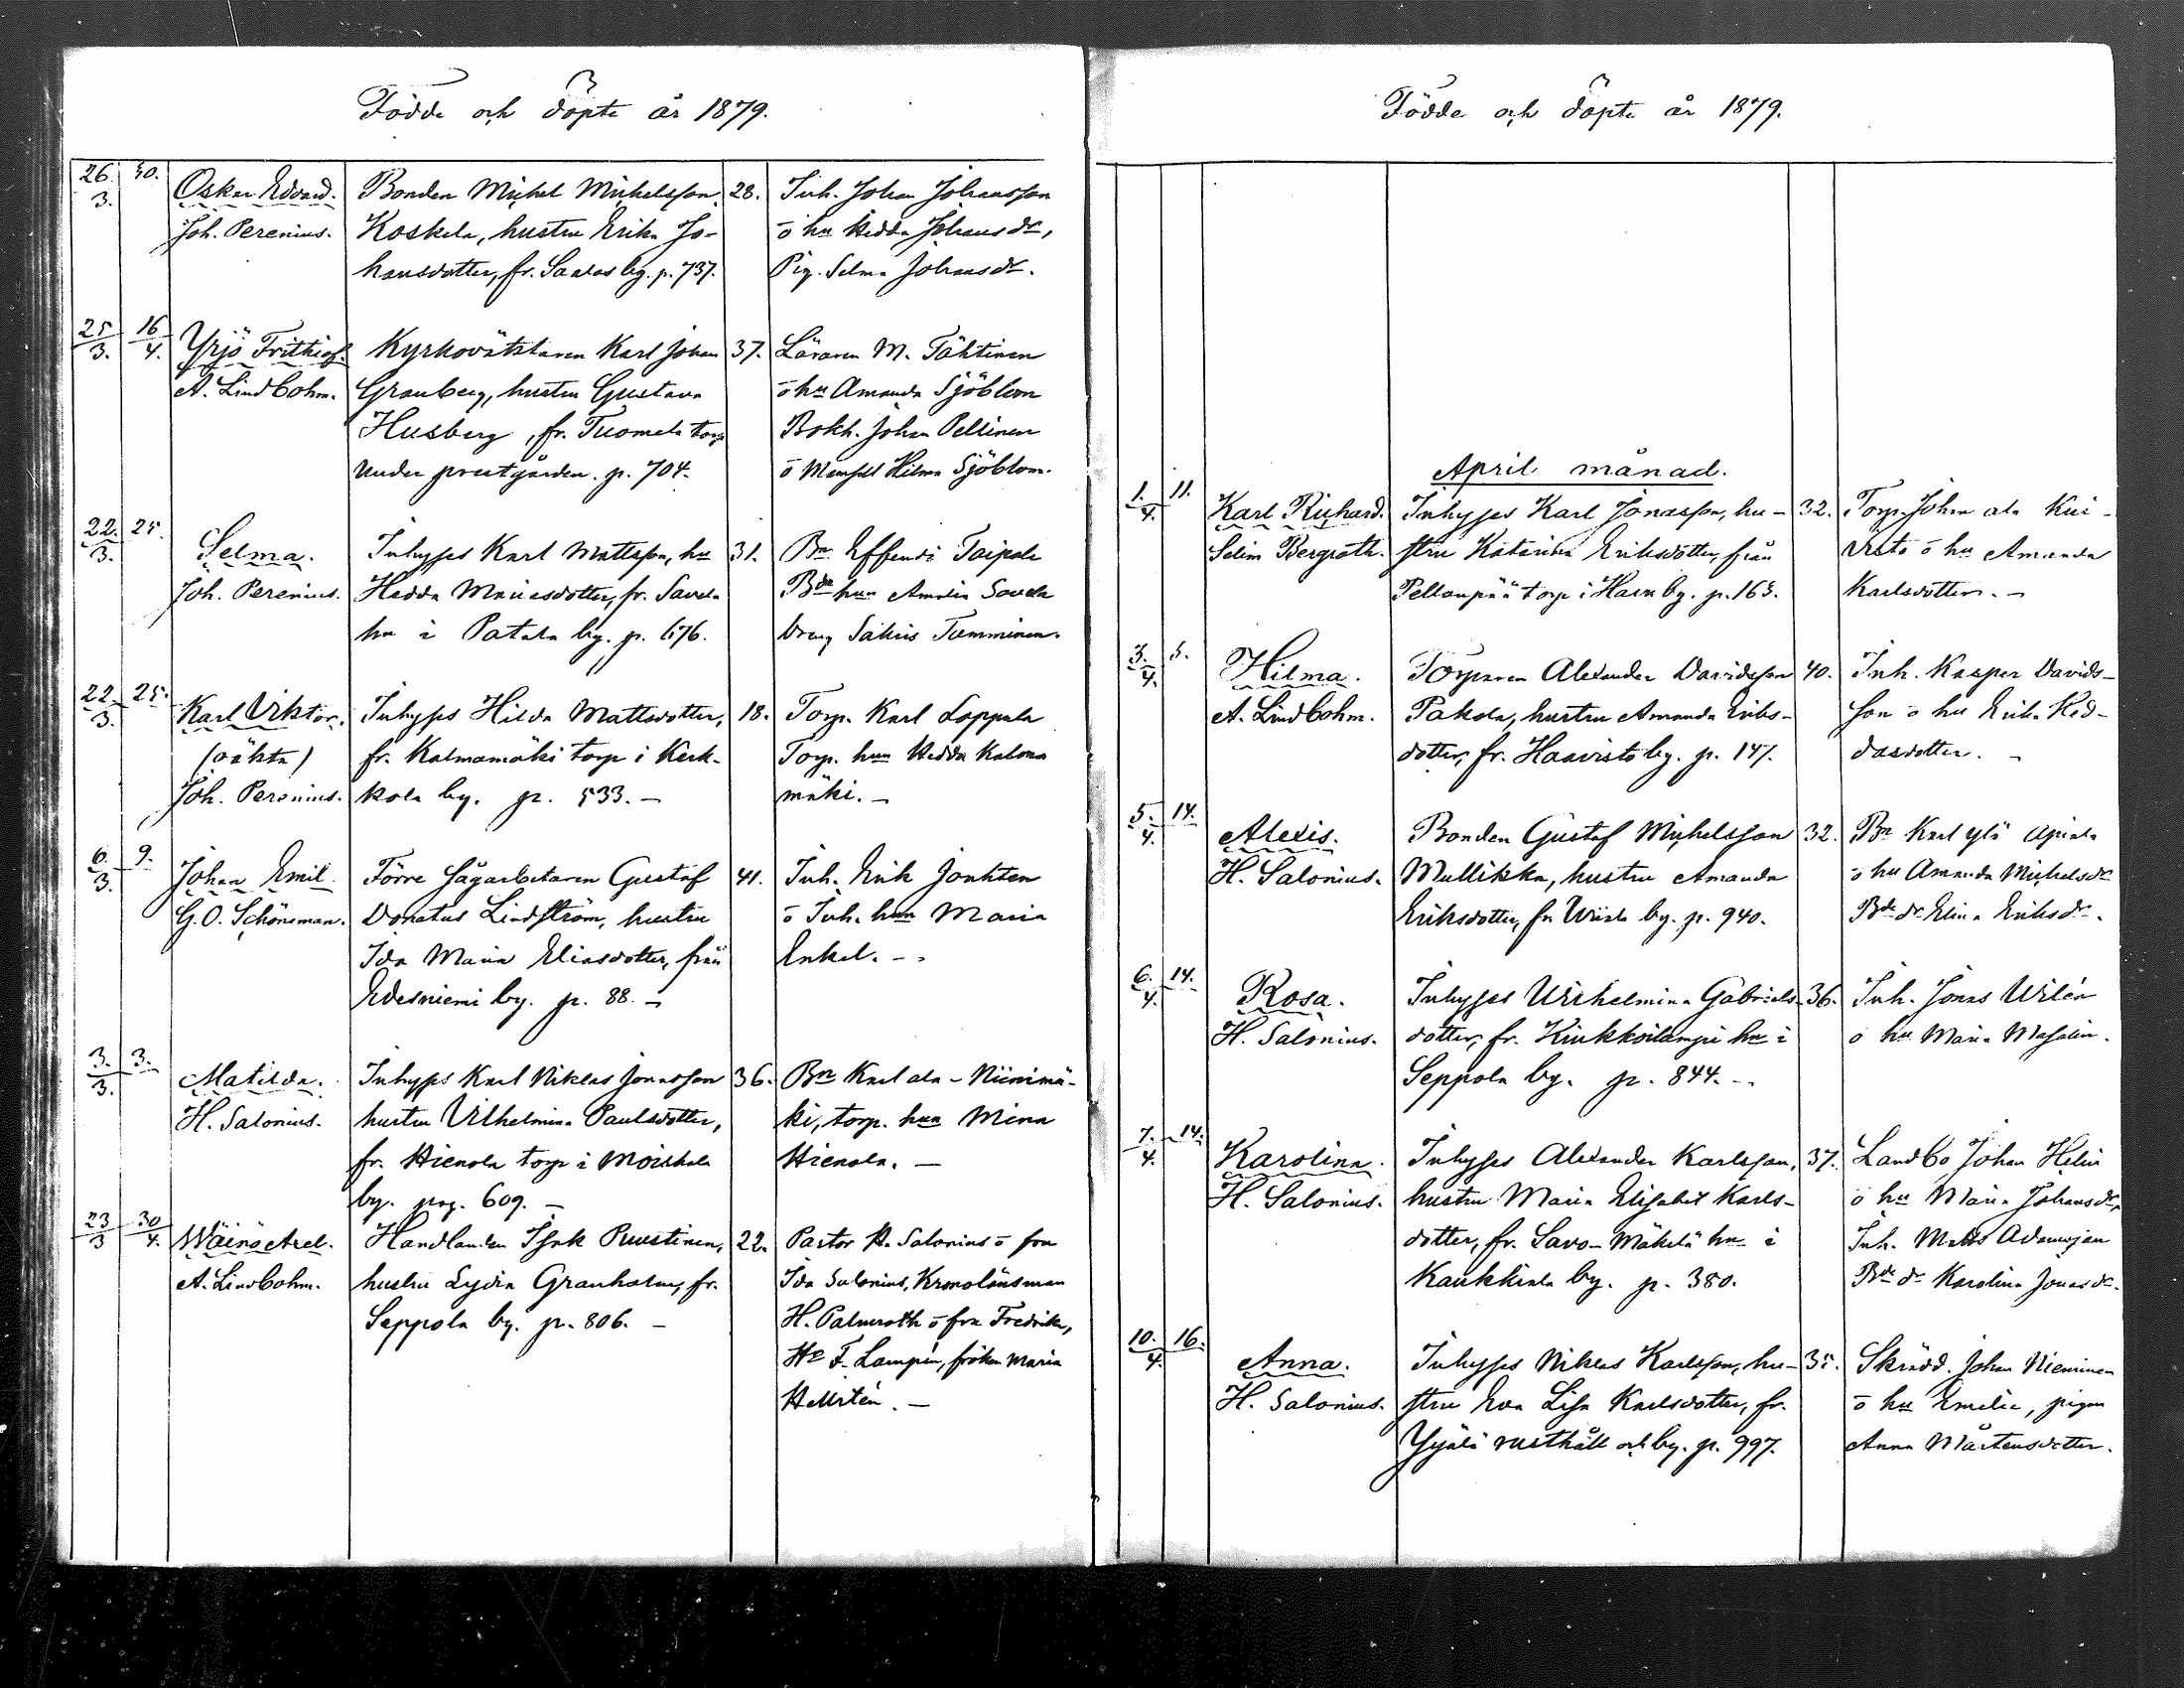 Födde och döpte år 1879.
26. 30. Oskar Edvard. Bonden Michel Michelsson 28. Inh. Johan Johansson
3. Joh. Perenius. Koskela, hustru Erika Jo- o hu Hedda Johansdr,
hansdotter, fr. Saalas by. p. 737. Pig. Selma Johansdr.
25 16 Yrjö Frithiof. Kyrkoväktaren Karl Johan 37. Läraren M. Tähtinen
3. 4. A. Lindbohm. Granberg, hustru Gustava o hu Amanda Sjöblom
Husberg, fr. Tuomela torp Bokh. Johan Pellinen
under prestgården. p. 704. o Hilma Sjöblom.
22. 25. Selma. Inhyses Karl Mattsson, hu 31. Bn Effendi Taipale
3. Joh. Perenius. Hedda fr. Savela Bde hun Amalia Savela
hn i Patala by. p. 676. dreng Sakris Tamminen.
22. 25. Karl Viktor. Inhyses Hilda Mattsdotter, 18. Torp. Karl Loppula
3. (oäkta) fr. Kalmamäki torp i Kerk- Torp. hun Hedda Kalma
Joh. Perenius. kola by. p. 533. – mäki. –
6. 9. Johan Emil. Förre sågarbetaren Gustaf 41. Inh. Erik Jonkten
3. G. O. Schöneman. Donatus Lindström, hustru o Inh. hun Maria
Ida Maria Eliasdotter, från Enkel. –
Edesniemi by. p. 88. –
3. 3. Matilda. Inhyses Karl Niklas Jonasson 36. Bn Karl ala-Niinimä-
3. H. Salonius. hustru Vilhelmina Paulsdotter, ki, torp. hun Mina
fr. Hienola torp i Moiskala Hienola. –
by. pag. 609. –
23 30 Wäinö Axel. Handlanden Isak Puustinen, 22. Pastor H. Salonius o fru
3 4. A. Lindbohm. hustru Lydia Granholm, fr. Ida Salonius, Kronolänsman
Seppola by. p. 806. – H. Palmroth o fru Fredrika,
Hr F. Lampén, fröken Maria
Hellstén. –
Födde och döpte år 1879.
April månad.
1. 11. Karl Richard. Inhyses Karl Jonasson, hu- 32. Torp. Johan ala Kui-
4. Selim Bergroth. stru Katarina Eriksdotter, från visto o hu Amanda
Pellonpää torp i by. p. 163. Karlsdotter. –
3. 5. Hilma. Torparen Alexander Davidsson 40. Inh. Kasper Davids-
4. A. Lindbohm. Pakola, hustru Amanda Eriks- son o hu Erika
dotter, fr. Haavisto by. p. 147. dasdotter. –
5. 14. Alexis. Bonden Gustaf Michelsson 32. Bn Karl ylä Apiala
4. H. Salonius. Mullikka, hustru Amanda o hu Amanda Michelsdr
Eriksdotter, fr. Wiista by. p. 940. Bde dr Elina Eriksdr.
6. 14. Rosa. Inhyses Wilhelmina Gabriels- 36. Inh. Jonas Wilén
4. H. Salonius. dotter, fr. Kiukkoilampi hn i o hu Maria Masalin.
Seppola by. p. 844. –
7. 14. Karolina. Inhyses Alexander Karlsson, 37. Landbo Johan Helin
4. H. Salonius. hustru Maria Elisabet Karls- o hu Maria Johansdr,
dotter, fr. Savo-Mäkelä hn i Inh. Matts Adamsson
Kaukkiala by. p. 380. Bde dr Karolina Jonasdr.
10. 16. Anna. Inhyses Niklas Karlsson, hu- 35. Skrädd. Johan Nieminen
4. H. Salonius. stru Eva Lisa Karlsdotter, fr. o hu Emelie, pigan
Yijälä rusthåll och by. p. 997. Anna Mårtensdotter.